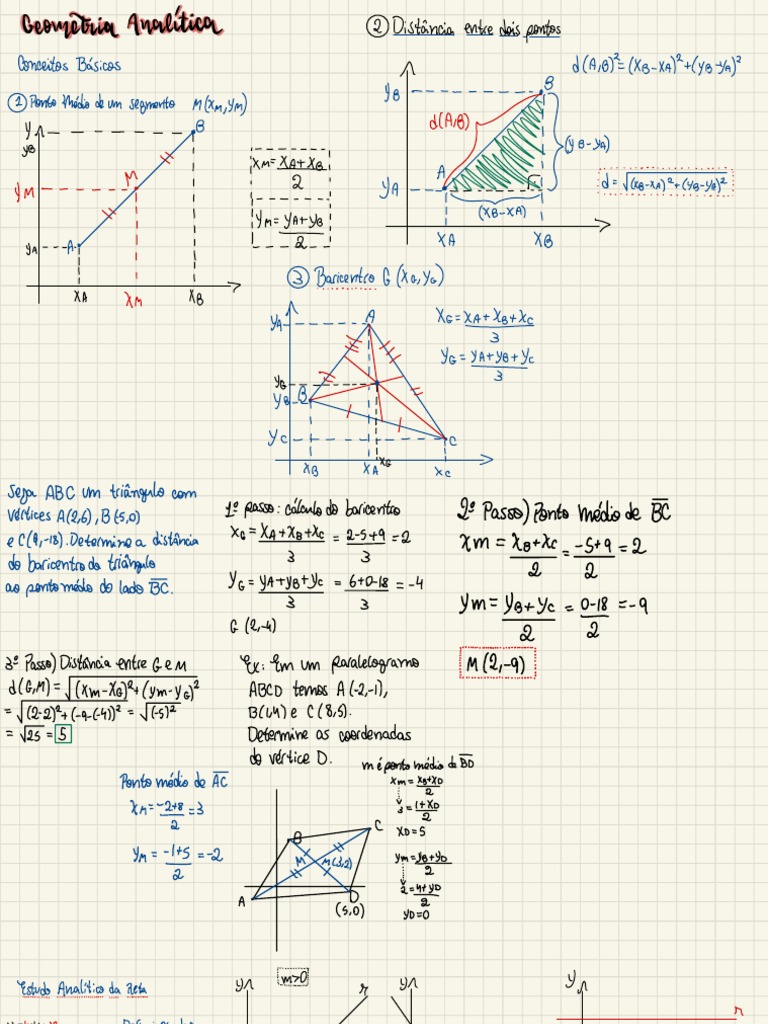 Geometria Analítica
Conceitos Básicos
① Ponto Médio de um segmento M(xM,yM)
y
yB
B
yM
M
yA
A
xA
xM
xB
xM = xA + xB / 2
yM = yA + yB / 2
② Distância entre dois pontos
d(A,B)² = (xB - xA)² + (yB - yA)²
yB
B
d(A,B)
(yB - yA)
A
yA
(xB - xA)
xA
xB
d = √(xB - xA)² + (yB - yB)²
③ Baricentro G (xG, yG)
yA
A
yG
yB
B
yC
C
xB
xA
xG
xC
xG = xA + xB + xC / 3
yG = yA + yB + yC / 3
Seja ABC um triângulo com
vértices A(2,6), B(5,0)
e C(9,-18). Determine a distância
do baricentro do triângulo
ao ponto médio do lado BC.
1º passo: cálculo do baricentro
xG = xA + xB + xC / 3 = 2-5+9 / 3 = 2
yG = yA + yB + yC / 3 = 6+0-18 / 3 = -4
G (2,-4)
2º Passo) Ponto médio de BC
xm = xB + xC / 2 = -5+9 / 2 = 2
ym = yB + yC / 2 = 0-18 / 2 = -9
M(2,-9)
3º Passo) Distância entre G e M
d(G,M) = √(xm - xG)² + (ym - yG)²
= √(2-2)² + (-9-(-4))² = √(-5)²
= √25 = 5
Ex: Em um paralelogramo
ABCD temos A(-2,-1),
B(1,4) e C(8,5).
Determine as coordenadas
do vértice D.
Ponto médio de AC
xM = -2+8 / 2 = 3
yM = -1+5 / 2 = -2
B
C
M
M(3,2)
A
D
(5,0)
m é ponto médio de BD
xm = xB + xD / 2
3 = 1 + xD / 2
xD = 5
ym = yB + yD / 2
2 = 4 + yD / 2
yD = 0
Estudo Analítico da Reta
m>0
y
r
y
y
r